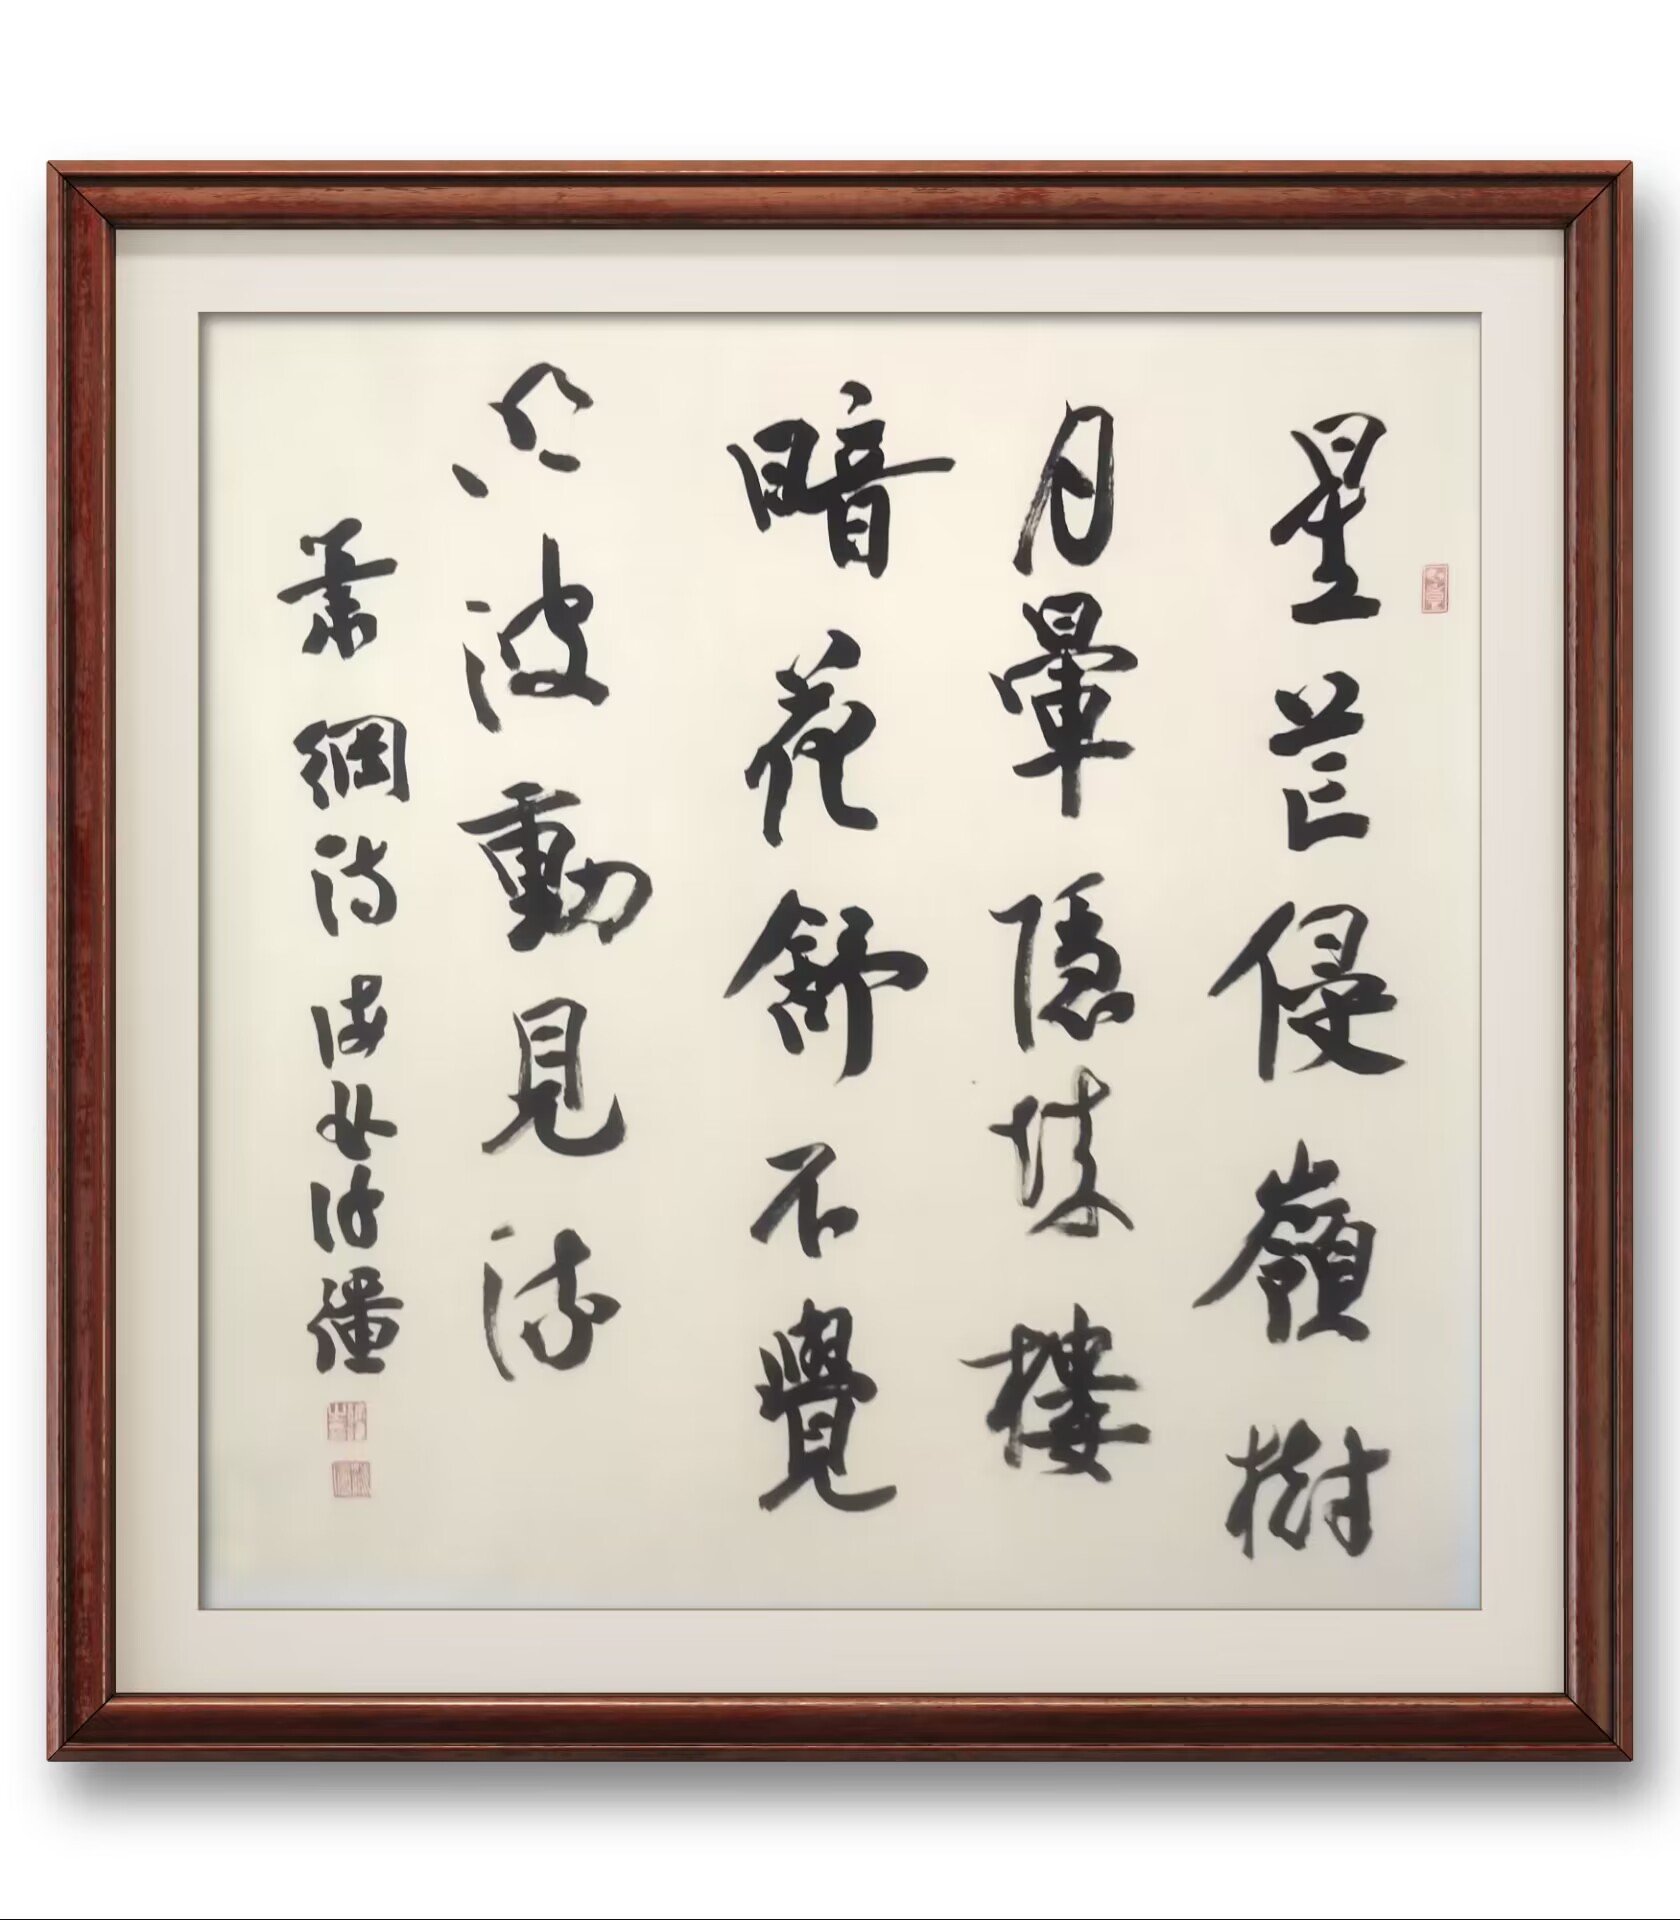 星芒侵嶺樹
月暈隱城樓
暗花舒不覺
明波動見流
蕭綱詩